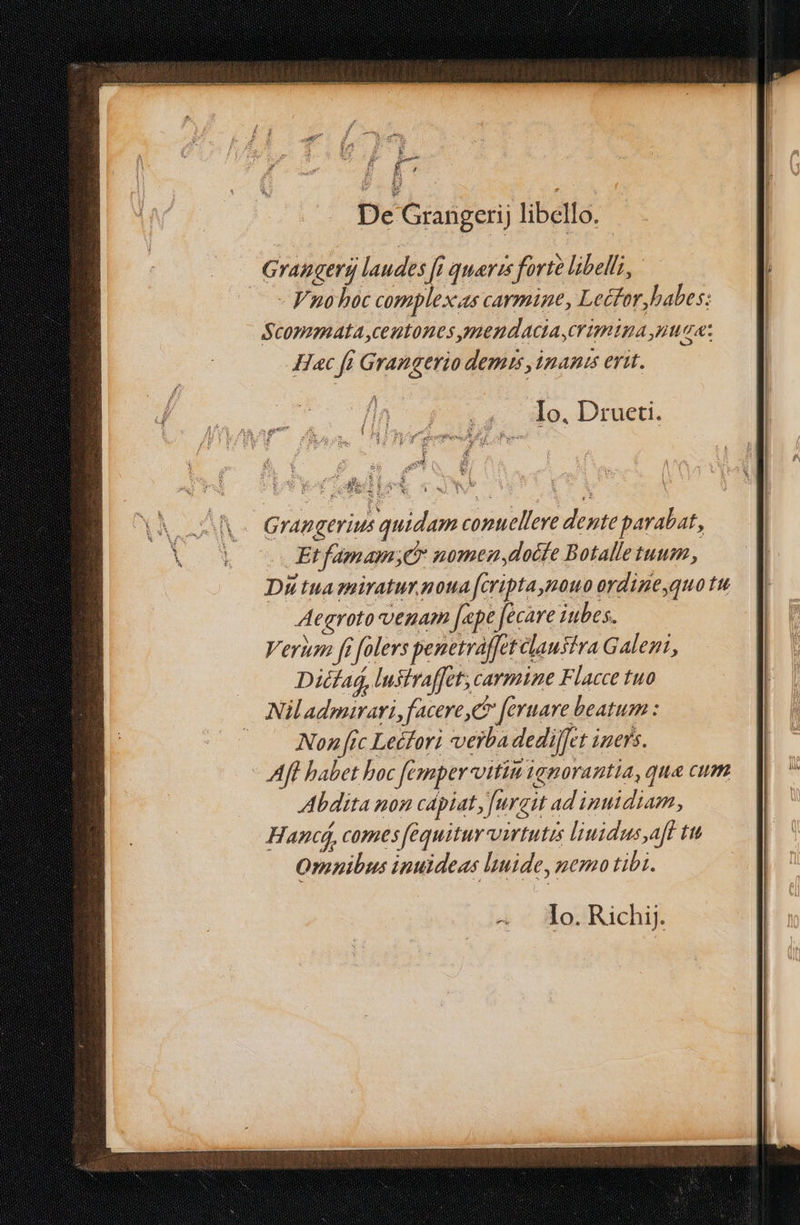 De Grangerij libello.
Grangerij laudes ſi quæris fortè libelli,
Vno hoc complexas carmine, Lector, habes:
Scommata, centones, mendacia, crimina, nugæ:
Hæc ſi Grangerio demis, inanis erit.
Io. Drueti.
Grangerius quidam conuellere dente parabat,
Et famam, & nomen, docte Botalle tuum,
Dũ tua miratur noua ſcripta, nouo ordine, quo tu
Aegroto venam ſæpe ſecare iubes.
Verùm ſi ſolers penetràſſet clauſtra Galeni,
Dictaq́, luſtraſſet, carmine Flacce tuo
Nil admirari, facere, & ſeruare beatum:
Non ſic Lectori verba dediſſet iners.
Aſt habet hoc ſemper vitiũ ignorantia, quæ cum
Abdita non capiat, ſurgit ad inuidiam,
Hancq́, comes ſequitur virtutis liuidus, aſt tu
Omnibus inuideas liuide, nemo tibi.
Io. Richij.